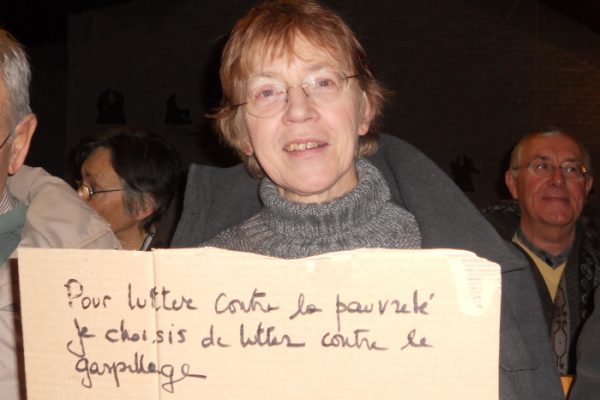 Pour lutter contre la pauvreté
je choisis de lutter contre le
gaspillage